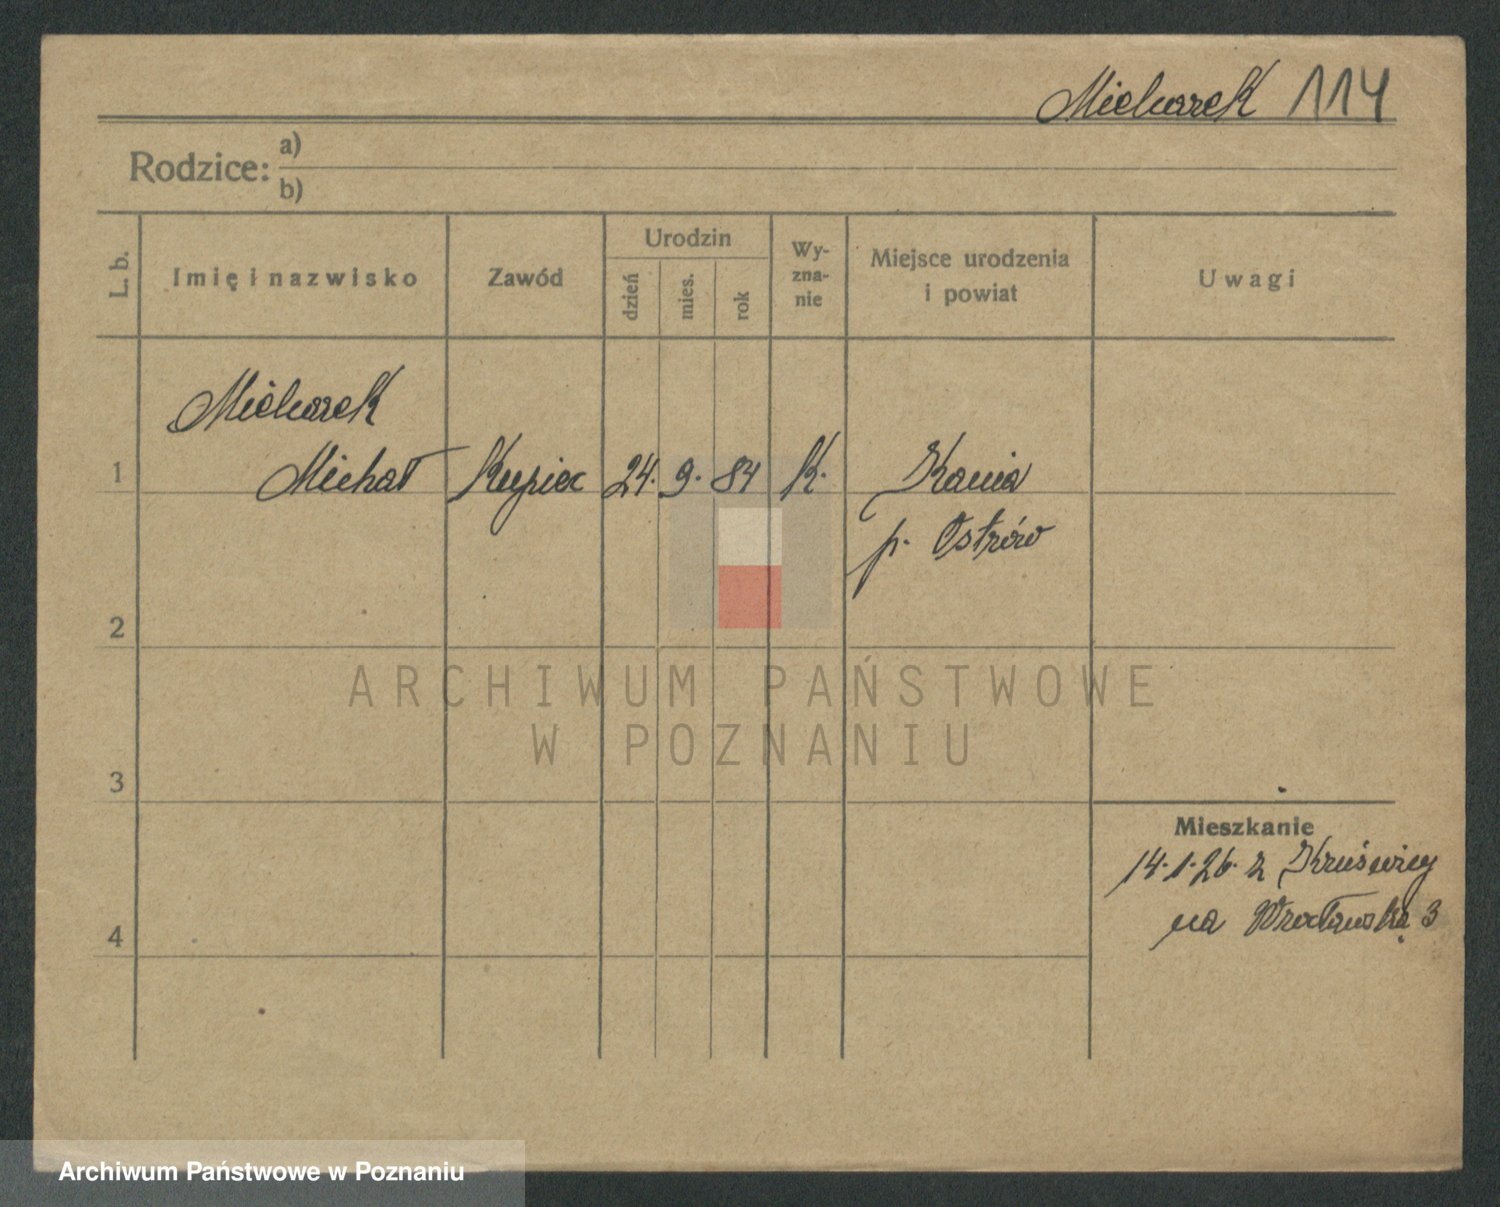 Mielcarek 114
Rodzice: a)
b)
L. b.
Imię i nazwisko
Zawód
Urodzin
dzień
mies.
rok
Wy-
zna-
nie
Miejsce urodzenia
i powiat
Uwagi
Mielcarek
1 Michał Kupiec 24. 9. 84 K. Kania
p. Ostrów
2
3
4
Mieszkanie
14.1.26. z Kruświcy
na Wrocławska 3
ARCHIWUM PAŃSTWOWE
W POZNANIU
Archiwum Państwowe w Poznaniu